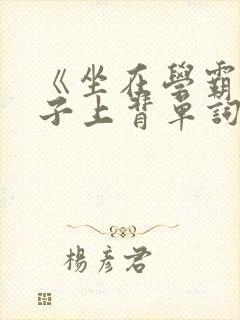 《坐在學霸
子上背單詞
楊彥君